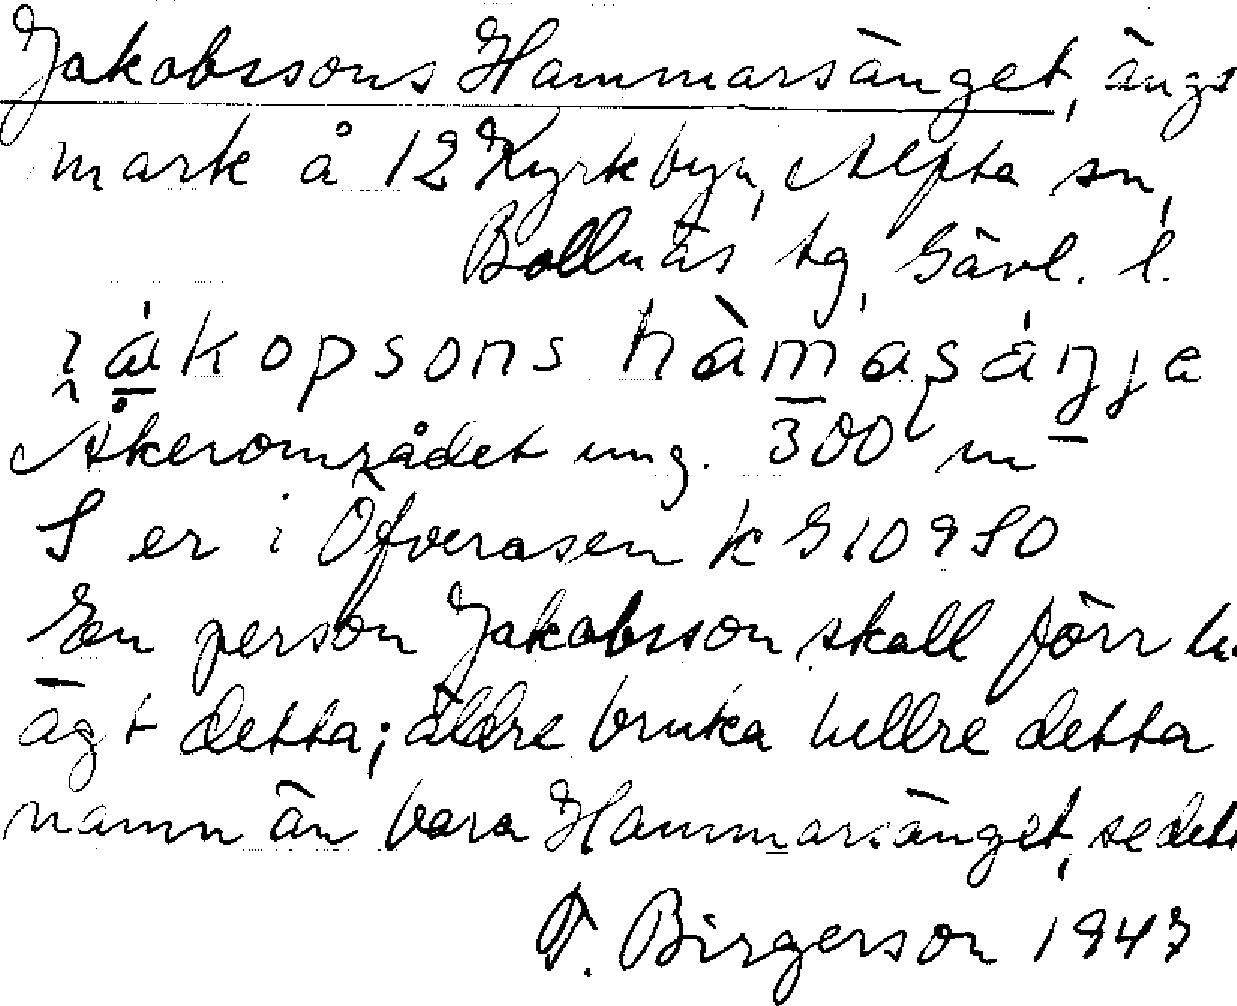 Jakobssons Hammarsänget, ängs
mark å 12 Kyrkbyn, Alfta sn,
Bollnäs tg, Gävl. l.
jákopsons hàmaşáŋja
Åkerområdet ung. 300 m
S er i Öfveråsen k G 10950
En person Jakobsson skall förr ha
ägt detta; äldre bruka hellre detta
namn än bara Hammarsänget, se dets
F. Birgerson 1947